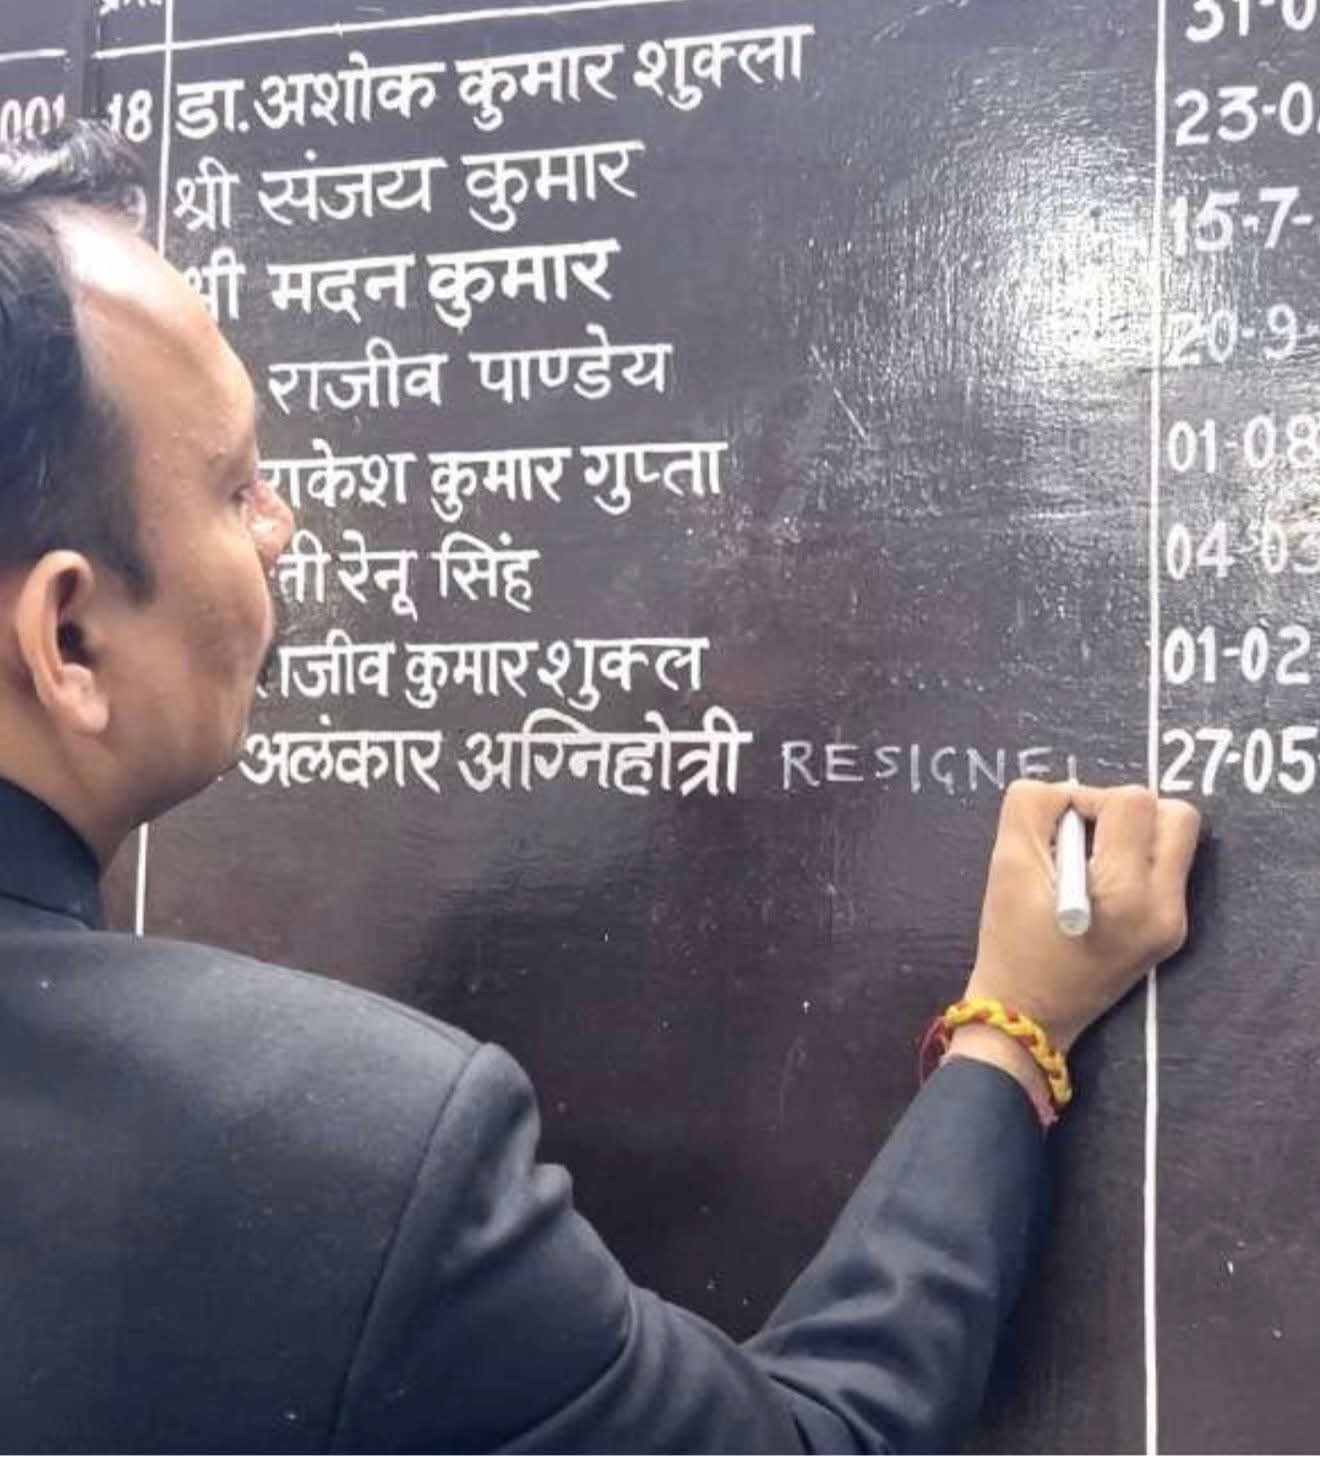 31-0
001 18 डा. अशोक कुमार शुक्ला 23-0
श्री संजय कुमार 15-7-
श्री मदन कुमार 20-9-
राजीव पाण्डेय
राकेश कुमार गुप्ता 01-08
ती रेनू सिंह 04-03
ाजीव कुमार शुक्ल 01-02
अलंकार अग्निहोत्री RESIGNE 27-05-